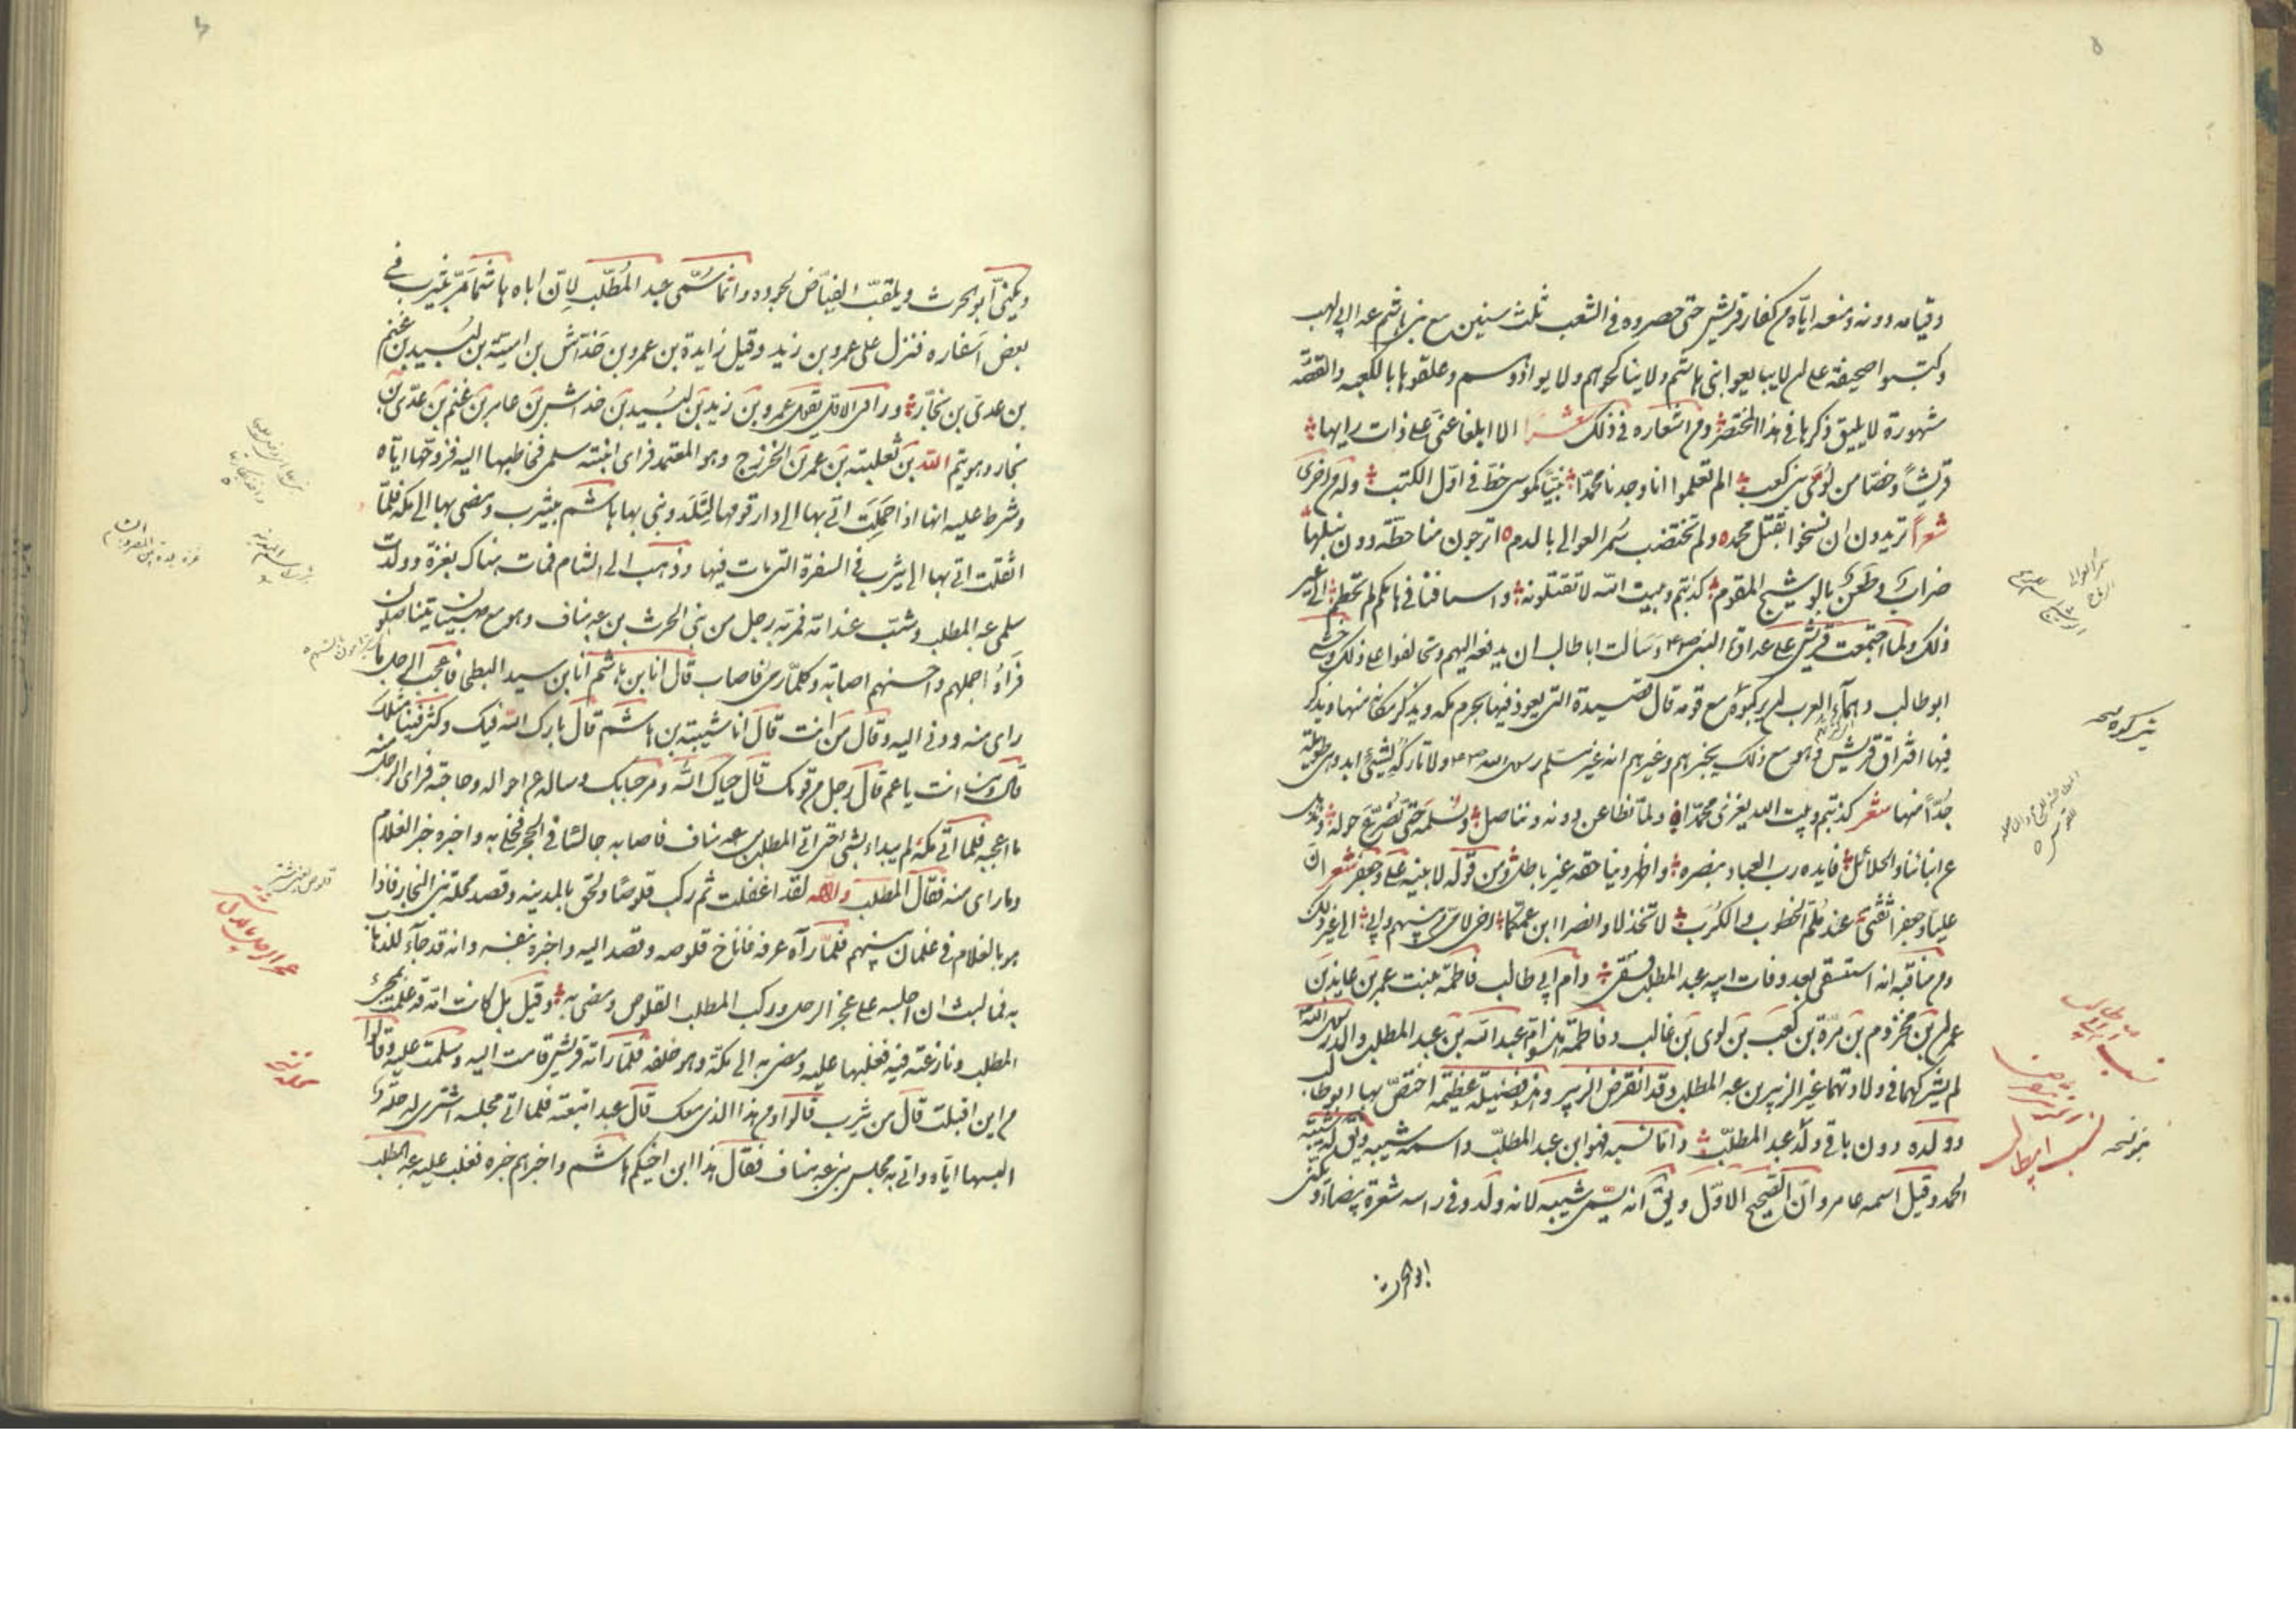 وقيامه دونه ومنعه اياه من كفار قريش حتى حصروه في الشعب ثلث سنين مع بني هاشم عدا ابي لهب
وكتبوا صحيفة على ان لا يبايعوا بني هاشم ولا يناكحوهم ولا يوادوهم وعلقوها بالكعبه والقصة
مشهورة لا يليق ذكرها في هذا المختصر ومن اشعاره في ذلك شعرا الا ابلغا عني على ذات رايها
قريشا وخصا من لوى بني كعب الم تعلموا انا وجدنا محمدا نبيا كموسى خط في اول الكتب وله من اخرى
شعرا تريدون ان نسخوا بقتل محمد ولم تختضب سمر العوالي بالدم اترجون منا خطة دون نيلها
ضراب وطعن بالوشيج المقوم كذبتم وبيت الله لا تقتلونه واسيافنا في هامكم لم تحطم الى غير
ذلك ولما اجتمعت قريش على عداوة النبي وسالت ابا طالب ان يدفعه اليهم وتحالفوا على ذلك وخشي
ابو طالب دهماء العرب ان يركبوه مع قومه قال قصيدة التي يعوذ فيها بحرم مكه ويذكر مكانه منها ويذكر
فيها افتراق قريش وهو مع ذلك يخبرهم وغيرهم انه غير مسلم رسول الله ولا تاركه لشيئ ابدا وهي طويلة
جدا منها شعر كذبتم وبيت الله يبزى محمدا ولما نطاعن دونه ونناضل ونسلمه حتى نصرع حوله ونذهل
عن ابنائنا والحلائل فايده رب العباد بنصره واظهر دينا حقه غير باطل ومن قوله لابنيه على وجعفر شعر ان
عليا وجعفرا ثقتي عند ملم الخطوب والكرب لا تخذلا وانصرا ابن عمكما اخي لامي من بينهم وابي الى غير ذلك
ومن مناقبه انه استسقى بعد وفات ابيه عبد المطلب فسقى وام ابي طالب فاطمة بنت عمر بن عايذ بن
عمران بن مخزوم بن مرة بن كعب بن لوى بن غالب وفاطمة هذه ام عبد الله بن عبد المطلب والد رسول الله
لم يشركهما في ولادتهما غير الزبير بن عبد المطلب وقد انقرض الزبير وهذه فضيلة عظيمة اختص بها ابو طالب
وولده دون باقي ولد عبد المطلب واما نسبه فهو ابن عبد المطلب واسمه شيبه ويق له شيبة
الحمد وقيل اسمه عامر وان الصحيح الاول ويق انه سمى شيبه لانه ولد وفي راسه شعرة بيضاء ويكنى
ابو الحرث
نسب ابي طالب
ويكنى ابو الحرث ويلقب الفياض لجوده وانما سمى عبد المطلب لان اباه هاشما مر بيثرب في
بعض اسفاره فنزل على عمرو بن زيد وقيل زايدة بن عمرو بن خداش بن امية بن لبيد بن غنم
بن عدي بن نجار ورافى الاقل يقول عمرو بن زيد بن لبيد بن خداش بن عامر بن غنم بن عدي بن
نجار وهو تيم الله بن ثعلبة بن عمر بن الخزرج وهو المعتمد فراى ابنته سلمى فخاطبها اليه فزوجها اياه
وشرط عليه انها اذا حملت اتى بها الى دار قومها لتلد وبنى بها هاشم بيثرب ومضى بها الى مكه فلما
اثقلت اتى بها الى يثرب في السفرة التي مات فيها وذهب الى الشام فمات هناك بغزة وولدت
سلمى عبد المطلب وشب عند امه فمر به رجل من بني الحرث بن عبد مناف وهو مع صبيان يتناضلون
فراه اجملهم واحسنهم اصابة وكلما رمى فاصاب قال انا ابن هاشم انا ابن سيد البطحا فاعجب الرجل ما
راى منه ودنى اليه وقال من انت قال انا شيبة بن هاشم قال بارك الله فيك وكثر فينا مثلك
قال ومن انت يا عم قال رجل من قومك قال حياك الله ومرحبا بك وساله عن احواله وحاجته فراى الرجل منه
ما اعجبه فلما اتى مكة لم يبداء بشئ حتى اتى المطلب بن عبد مناف فاصابه جالسا في الحجر فخلى به واخبره خبر الغلام
وما راى منه فقال المطلب والله لقد اغفلت ثم ركب قلوصا ولحق بالمدينه وقصد محلة بني النجار فاذا
هو بالغلام في غلمان بينهم فلما راه عرفه فاناخ قلوصه وقصد اليه واخبره بنفسه وانه قد جاء للذهاب
به فما لبث ان اجلسه على عجز الرحل وركب المطلب القلوص ومضى به وقيل بل كانت امه قد علمت بمجئ
المطلب ونازعته فيه فغلبها عليه ومضى به الى مكة وهو خلفه فلما راته قريش قامت اليه وسلمت عليه وقالوا
من اين اقبلت قال من يثرب قالوا ومن هذا الذي معك قال عبد ابتعته فلما اتى محلة اشترى له حلة
البسها اياه واتى به مجلس بني عبد مناف فقال هذا ابن اخيكم هاشم واخبرهم خبره فغلب عليه عبد المطلب